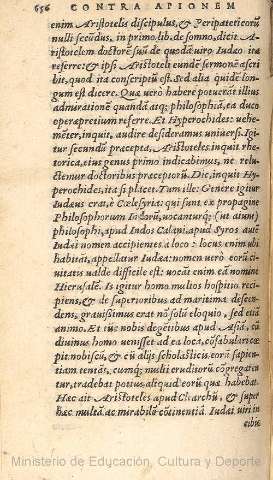 656 CONTRA APIONEM
enim Aristotelis discipulus, & Peripateticorũ
nulli secũdus, in primo lib. de somno, dicit A-
ristotelem doctorẽ suũ de quodã uiro Iudæo ita
referre: & ipsi Aristoteli eundẽ sermonẽ ascri
bit, quod ita conscriptũ est. Sed alia quidẽ lon-
gum est dicere. Quæ uerò habere potuerãt illius
admirationẽ quandã atq; philosophiã, ea duco
operæpretium referre. Et Hyperochides: uehe-
mẽter, inquit, audire desideramus uniuersi. Igi
tur secundũ præcepta, Aristoteles inquit rhe-
torica, eius genus primo indicabimus, ne relu-
ctemur doctoribus præceptiorũ. Dic, inquit Hy-
perochides, ita si placet. Tum ille: Genere igitur
Iudæus erat, è CœleSyria: qui sunt ex propagine
Philosophorum Indorũ, uocanturq; (ut aiunt)
philosophi, apud Indos Calani, apud Syros autẽ
Iudæi nomen accipientes à loco: locus enim ubi
habitãt, appellatur Iudæa: nomen uerò eorũ ci-
uitatis ualde difficile est: uocãt enim eã nomine
Hierusalẽ. Is igitur homo multos hospitio reci-
piens, & de superioribus ad maritima descen-
dens, grauissimus erat nõ solũ eloquio, sed etiã
animo. Et tũc nobis degẽtibus apud Asiã, cũ
diuinus homo uenisset ad ea loca, cõfabulatione
pit nobiscũ, & cũ alijs scholasticis eorũ sapien-
tiam tentãs. cumq; multi eruditorũ cõgregaren
tur, tradebat potius aliquid eorũ quæ habebat.
Hæc ait Aristoteles apud Clearchũ, & super
hæc multã ac mirabilẽ cõtinentiã Iudæi uiri in
cibis
Ministerio de Educación, Cultura y Deporte